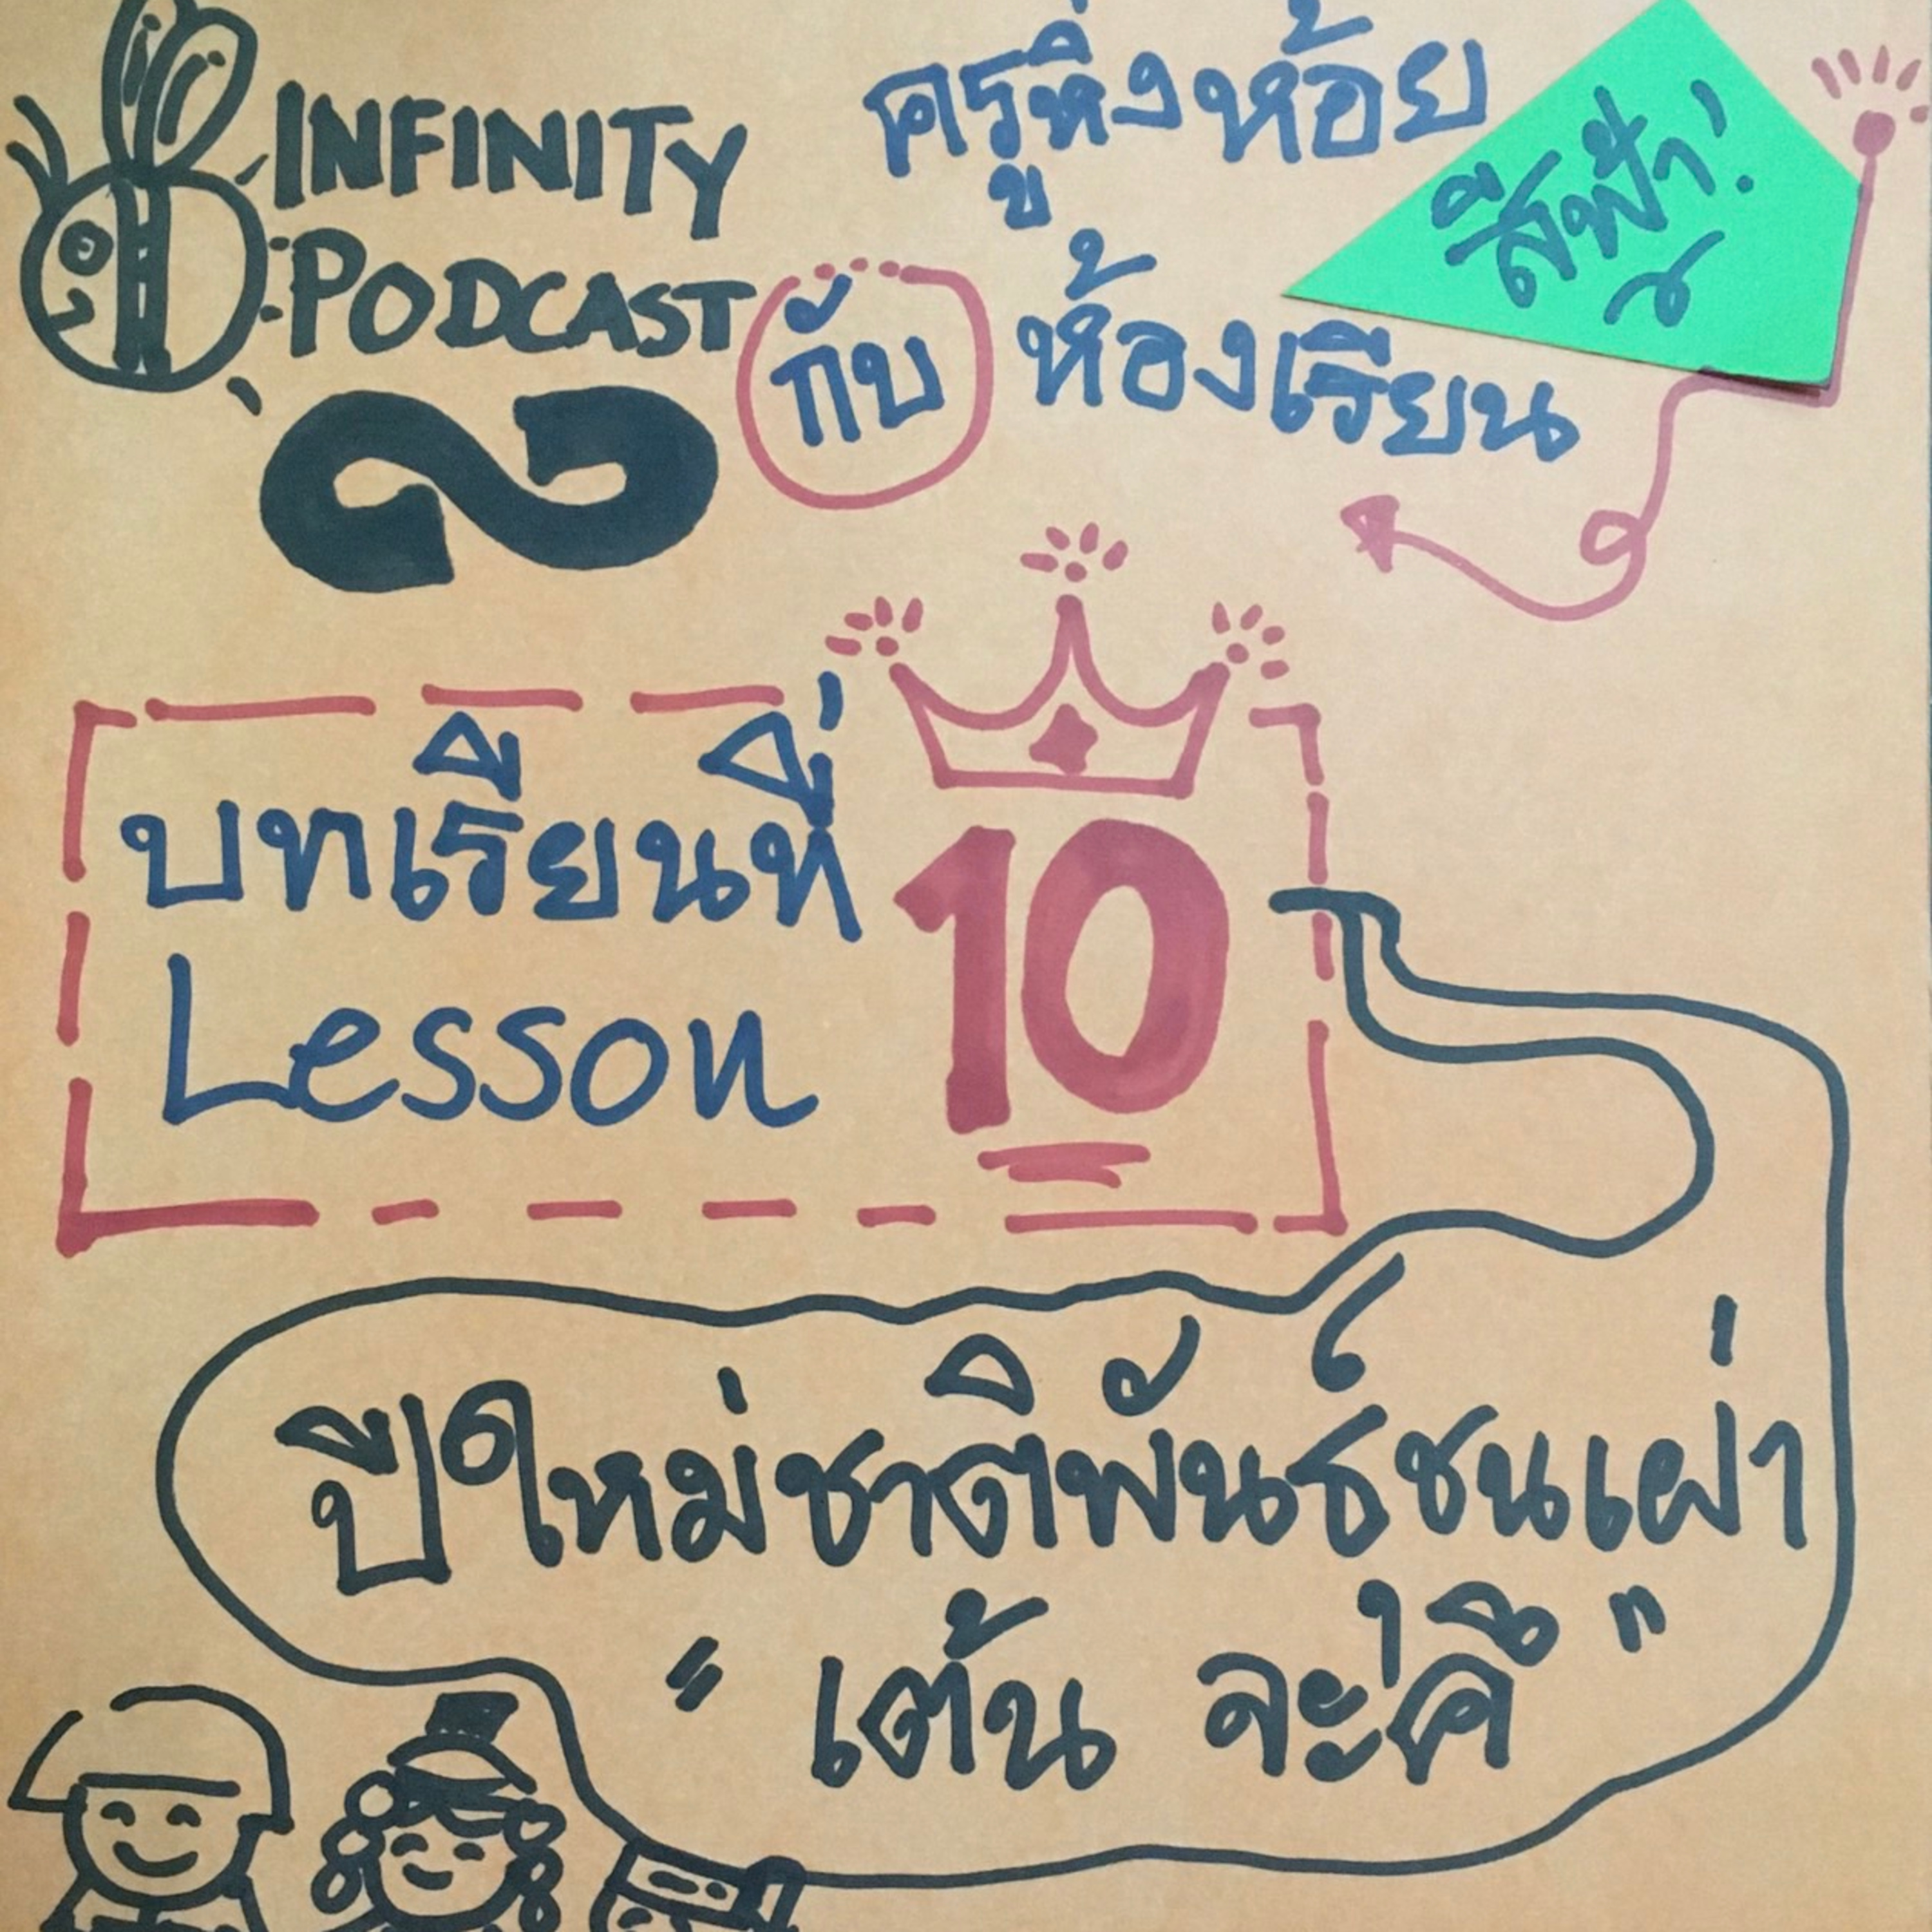 INFINITY
PODCAST
ครูหิ่งห้อย
กับ ห้องเรียน
สีฟ้า!
บทเรียนที่
Lesson
10
ปีใหม่ชาติพันธ์ชนเผ่า
"เต้น จะคึ"